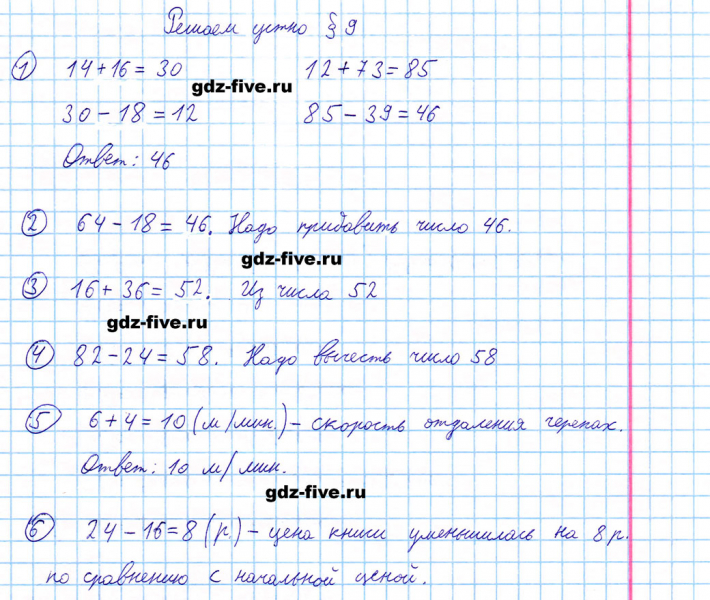 Решаем устно § 9
① 14 + 16 = 30 12 + 73 = 85
gdz-five.ru
30 - 18 = 12 85 - 39 = 46
Ответ: 46
② 64 - 18 = 46. Надо прибавить число 46.
gdz-five.ru
③ 16 + 36 = 52. Из числа 52
gdz-five.ru
④ 82 - 24 = 58. Надо вычесть число 58
⑤ 6 + 4 = 10 (м/мин.) - скорость отдаления черепах.
Ответ: 10 м/мин.
gdz-five.ru
⑥ 24 - 16 = 8 (р.) - цена книги уменьшилась на 8 р.
по сравнению с начальной ценой.